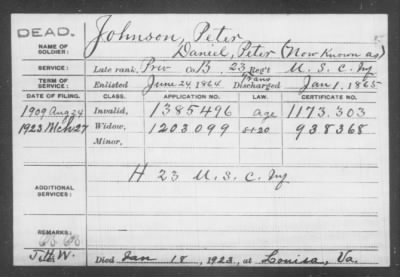 DEAD.
Johnson, Peter
NAME OF SOLDIER:
Daniel, Peter (Now Known as)
SERVICE:
Late rank, Priv Co. B, 23 Reg't U. S. C. Inf
TERM OF SERVICE:
Enlisted June 24 1864 Trans Discharged Jan 1. 1865
DATE OF FILING. CLASS. APPLICATION NO. LAW. CERTIFICATE NO.
1909 Aug 24 Invalid, 1385496 age 1173.303
1923 Mch 27 Widow, 1203099 938368
Minor,
H 23 U. S. C. Inf
ADDITIONAL SERVICES:
REMARKS:
W. Died Jan 18, 1923, at Louisa, Va.